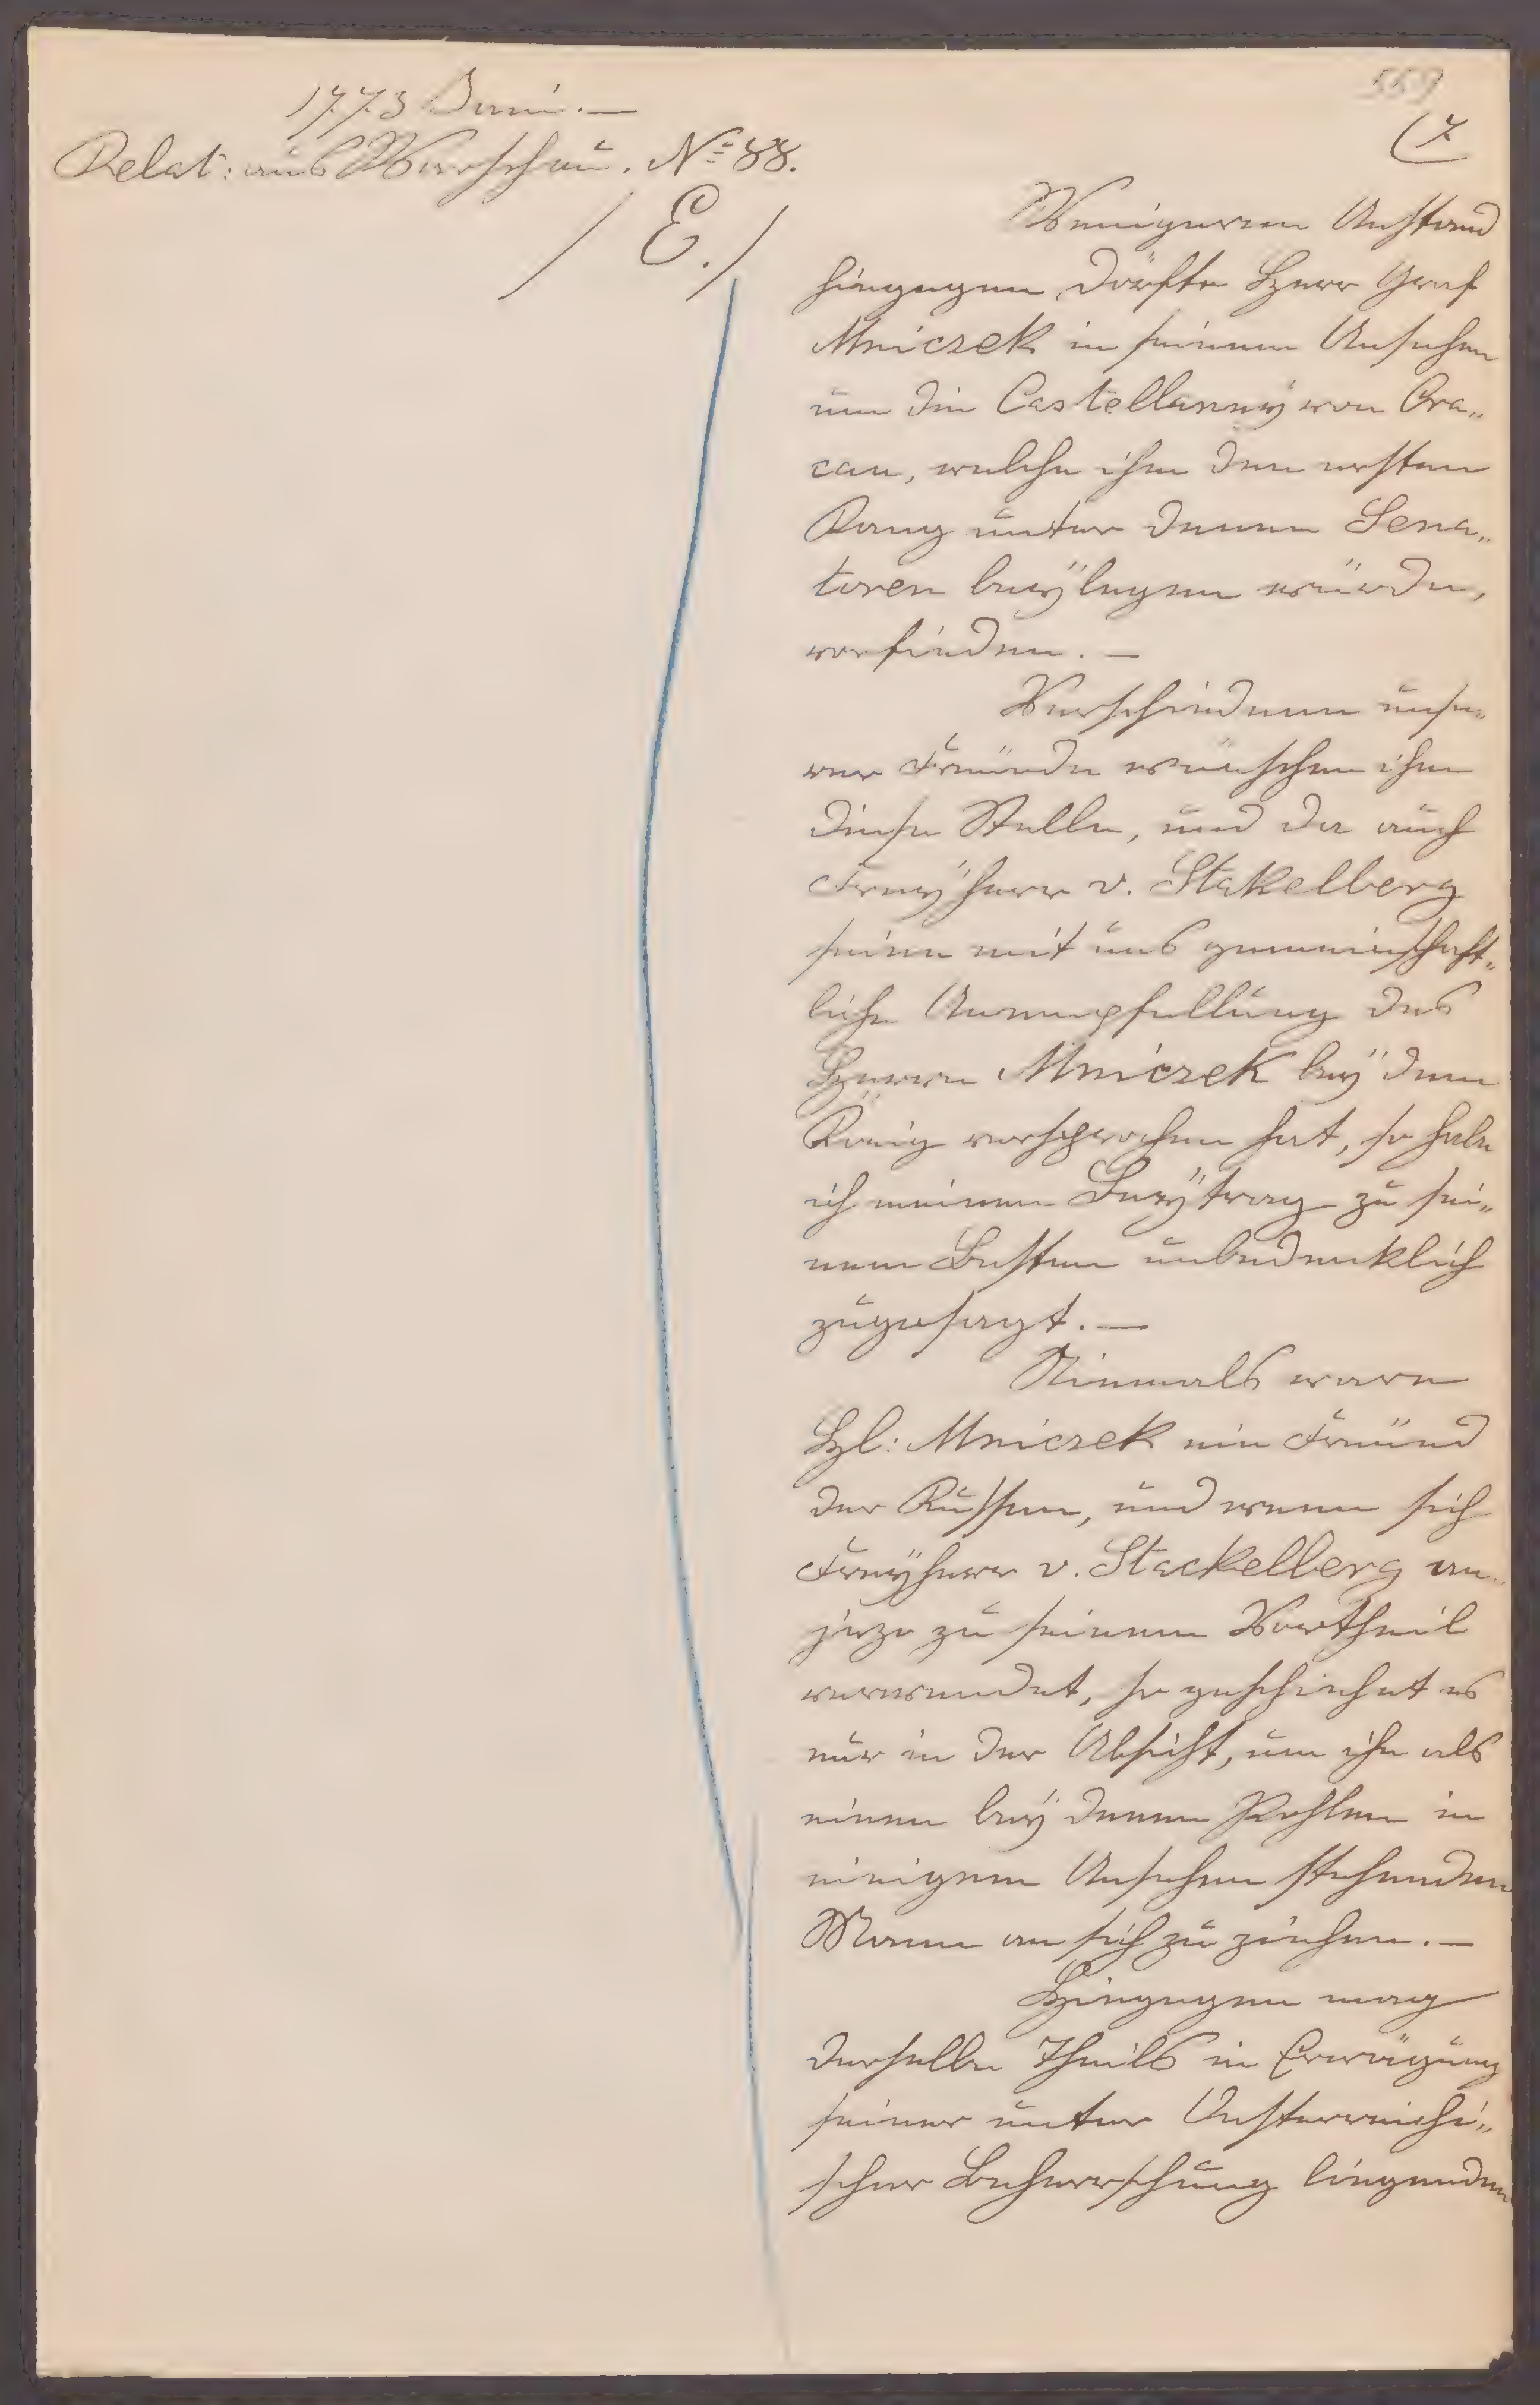 1773 Juni. —
Relat: aus Warschau. No 88.
/ E. /
559
(7
Wenigeren Anstand
hingegen dörfte Herr Graf
Mniczek in seinem Ansuchen
um die Castellaney von Cra„
cau, welche ihm den ersten
Rang unter denen Sena„
toren beÿlegen würde,
vorfinden. —
Verschiedene unse„
rer Freünde wünschen ihm
diese Stelle, und da auch
Freyherr v. Stakelberg
seine mit uns gemeinschaft„
liche Anempfellung des
Herrn Mniczek beÿ dem
König versprochen hat, so habe
ich meinen Beÿtrag zu sei„
nem Besten unbedenklich
zugesagt. —
Niemals ware
H: Mniczek ein Freünd
der Russen, und wenn sich
Freÿherr v. Stackelberg an„
jezo zu seinem Vortheil
verwendet, so geschiehet es
nur in der Absicht, um ihn als
einen beÿ denen Pohlen in
einigem Ansehen stehenden
Mann an sich zu ziehen. —
Hingegen mag
derselbe theils in Erwägung
seiner unter Oesterreichi„
scher Beherrschung liegenden